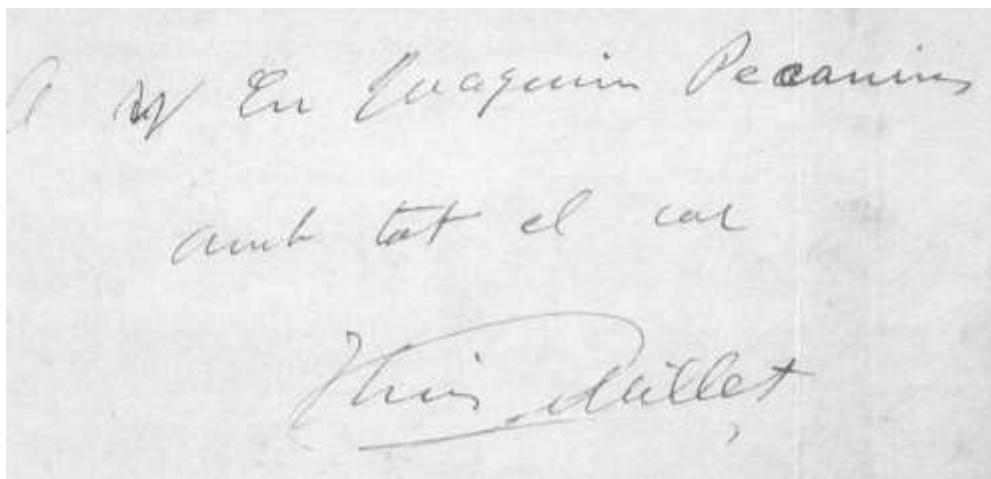 A En Joaquim Pecanins
amb tot el cor
Lluis Millet